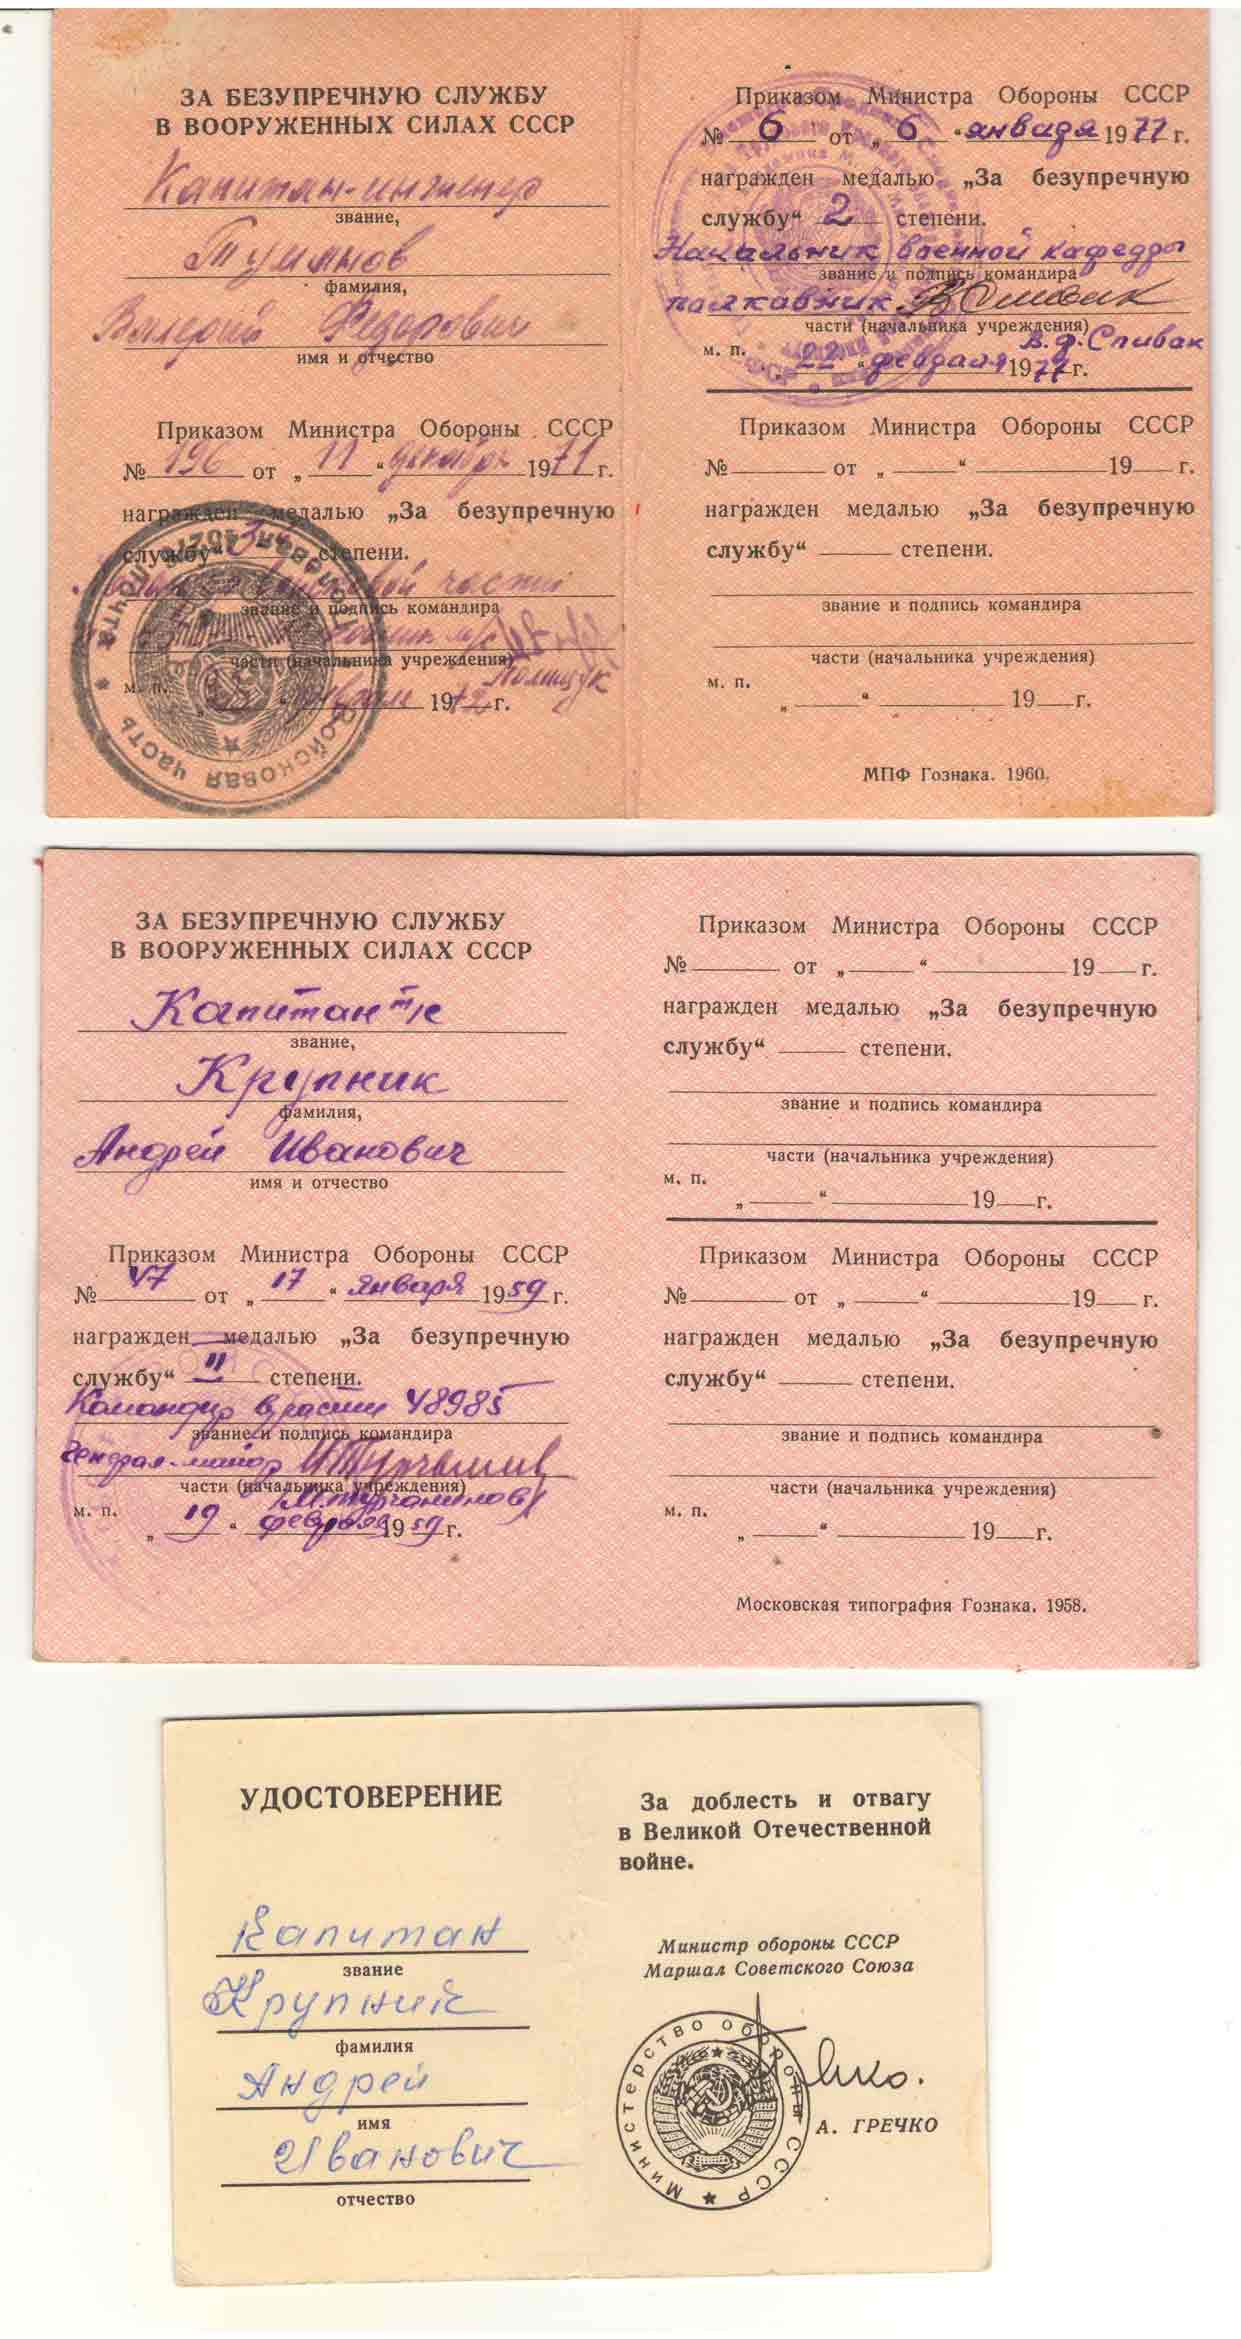 ЗА БЕЗУПРЕЧНУЮ СЛУЖБУ
В ВООРУЖЕННЫХ СИЛАХ СССР
Капитан-инженер
звание,
фамилия,
Валерий Федорович
имя и отчество
Приказом Министра Обороны СССР
№ 196 от „ 11 “ декабря 1971 г.
награжден медалью „За безупречную
службу“ 3 степени.
войсковой части
звание и подпись командира
части (начальника учреждения)
Полищук
м. п.
января 1972 г.
Войсковая часть Полевая почта
Приказом Министра Обороны СССР
№ 6 от „ 6 “ января 1977 г.
награжден медалью „За безупречную
службу“ 2 степени.
Начальник военной кафедры
звание и подпись командира
полковник
части (начальника учреждения)
В.Ф. Спивак
м. п.
„ 22 “ февраля 1977 г.
Приказом Министра Обороны СССР
№ от „ “ 19 г.
награжден медалью „За безупречную
службу“ степени.
звание и подпись командира
части (начальника учреждения)
м. п.
„ “ 19 г.
МПФ Гознака. 1960.
ЗА БЕЗУПРЕЧНУЮ СЛУЖБУ
В ВООРУЖЕННЫХ СИЛАХ СССР
Капитан т/с
звание,
Крупник
фамилия,
Андрей Иванович
имя и отчество
Приказом Министра Обороны СССР
№ 47 от „ 17 “ января 1959 г.
награжден медалью „За безупречную
службу“ II степени.
Командир в/части 48985
звание и подпись командира
генерал-майор
части (начальника учреждения)
м. п.
„ 19 “ февраля 1959 г.
Приказом Министра Обороны СССР
№ от „ “ 19 г.
награжден медалью „За безупречную
службу“ степени.
звание и подпись командира
части (начальника учреждения)
м. п.
„ “ 19 г.
Приказом Министра Обороны СССР
№ от „ “ 19 г.
награжден медалью „За безупречную
службу“ степени.
звание и подпись командира
части (начальника учреждения)
м. п.
„ “ 19 г.
Московская типография Гознака. 1958.
УДОСТОВЕРЕНИЕ
Капитан
звание
Крупник
фамилия
Андрей
имя
Иванович
отчество
За доблесть и отвагу
в Великой Отечественной
войне.
Министр обороны СССР
Маршал Советского Союза
Министерство обороны СССР
А. ГРЕЧКО